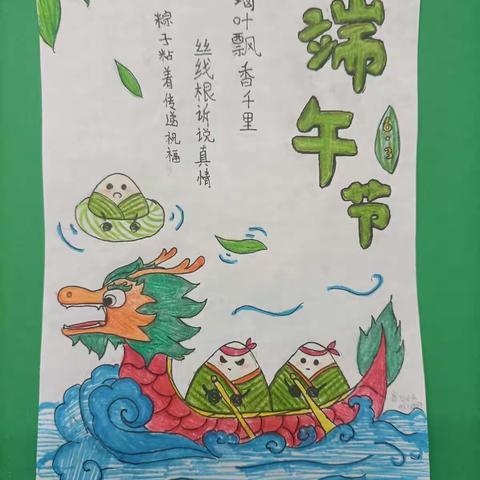 端午节
6.3
叶飘香千里
丝线根诉说真情
粽子粘着传递祝福